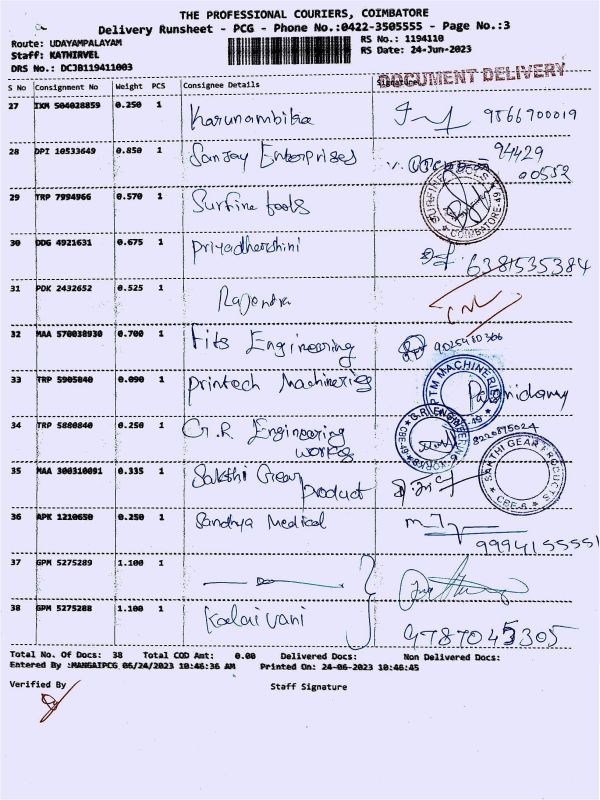 THE PROFESSIONAL COURIERS, COIMBATORE
Delivery Runsheet - PCG - Phone No.:0422-3505555 - Page No.:3
Route: UDAYAMPALAYAM
RS No.: 1194110
Staff: KATHIRVEL
RS Date: 24-Jun-2023
DRS No.: DCJB119411003
DOCUMENT DELIVERY
S No Consignment No Weight PCS Consignee Details Signature
27 IXM 504028859 0.250 1 Karunambika 9566700019
28 DPI 10533649 0.850 1 Sanjay Enterprises 94429
00552
29 TRP 7994966 0.570 1 Surfine fools SURFINE TOOLS COIMBATORE-49
30 DDG 4921631 0.675 1 Priyadharshini 6381535384
31 PDK 2432652 0.525 1 Rajendra
32 MAA 570038930 0.700 1 Fits Engineering 9025980366
33 TRP 5905840 0.090 1 Printech Machineries PTM MACHINERIES
34 TRP 5880840 0.250 1 G.R. Engineering G.R. ENGINEERING WORKS CBE-49 8220875024
works
35 MAA 300310091 0.335 1 Sakthi Gear SAKTHI GEAR PRODUCTS CBE-6
product
36 APK 1210650 0.250 1 Sandhya Medical
9994155551
37 GPM 5275289 1.100 1 — Do —
38 GPM 5275288 1.100 1 Kalaivani 9787045305
Total No. Of Docs: 38 Total COD Amt: 0.00 Delivered Docs: Non Delivered Docs:
Entered By :MANGAIPCG 06/24/2023 10:46:36 AM Printed On: 24-06-2023 10:46:45
Verified By Staff Signature